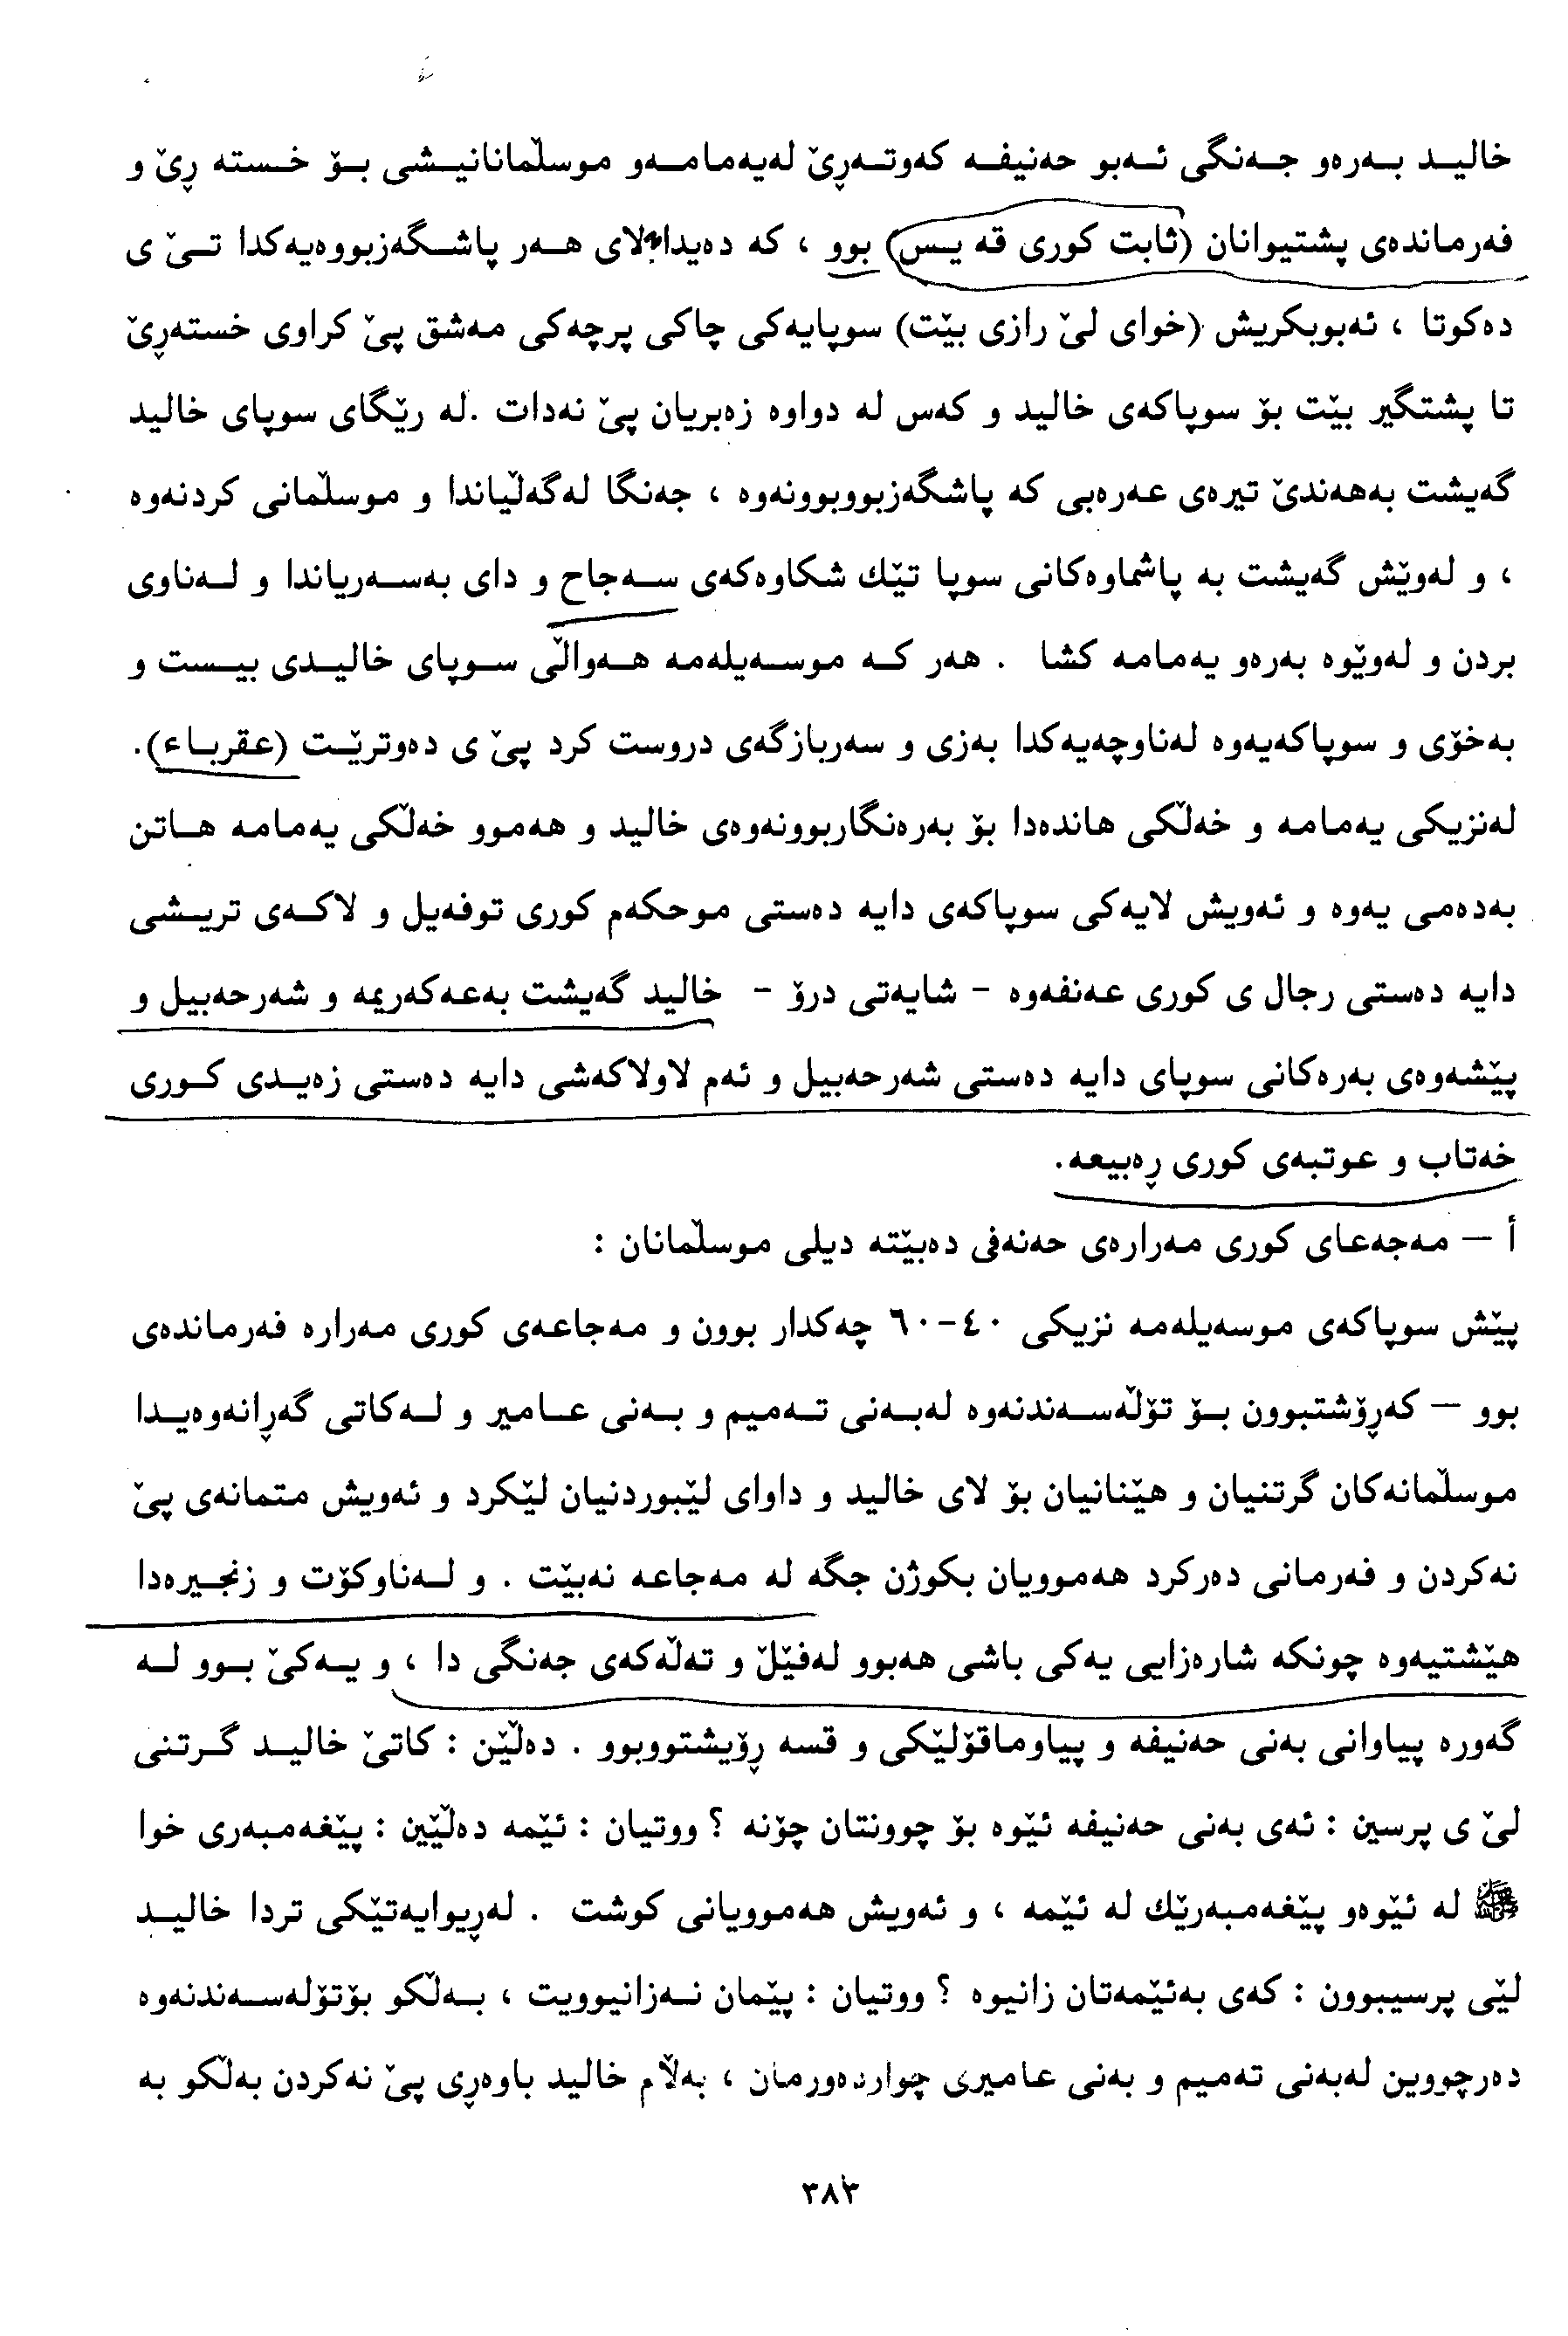 خالید بەرەو جەنگی ئەبو حەنیفە کەوتەڕێ لەیەمامەو موسڵمانانیشی بۆ خستە ڕێ و
فەرماندەی پشتیوانان (ثابت کوری قە یس) بوو ، کە دەیدا لای هەر پاشگەزبووەیەکدا تێ ی
دەکوتا ، ئەبوبکریش (خوای لێ رازی بێت) سوپایەکی چاکی پرچەکی مەشق پێ کراوی خستەڕێ
تا پشتگیر بێت بۆ سوپاکەی خالید و کەس لە دواوە زەبریان پێ نەدات .لە رێگای سوپای خالید
گەیشت بەهەندێ تیرەی عەرەبی کە پاشگەزبووبوونەوە ، جەنگا لەگەڵیاندا و موسڵمانی کردنەوە
، و لەوێش گەیشت بە پاشماوەکانی سوپا تێك شکاوەکەی سەجاح و دای بەسەریاندا و لەناوی
بردن و لەوێوە بەرەو یەمامە کشا . هەر کە موسەیلەمە هەواڵی سوپای خالیدی بیست و
بەخۆی و سوپاکەیەوە لەناوچەیەکدا بەزی و سەربازگەی دروست کرد پێ ی دەوترێت (عقرباء).
لەنزیکی یەمامە و خەڵکی هاندەدا بۆ بەرەنگاربوونەوەی خالید و هەموو خەڵکی یەمامە هاتن
بەدەمی یەوە و ئەویش لایەکی سوپاکەی دایە دەستی موحکەم کوری توفەیل و لاکەی تریشی
دایە دەستی رجال ی کوری عەنفەوە - شایەتی درۆ - خالید گەیشت بەعەکەریمە و شەرحەبیل و
پێشەوەی بەرەکانی سوپای دایە دەستی شەرحەبیل و ئەم لاولاکەشی دایە دەستی زەیدی کوری
خەتاب و عوتبەی کوری ڕەبیعە.
أ – مەجەعای کوری مەرارەی حەنەفی دەبێتە دیلی موسڵمانان :
پێش سوپاکەی موسەیلەمە نزیکی ٤٠-٦٠ چەکدار بوون و مەجاعەی کوری مەرارە فەرماندەی
بوو – کەڕۆشتبوون بۆ تۆڵەسەندنەوە لەبەنی تەمیم و بەنی عامیر و لەکاتی گەڕانەوەیدا
موسڵمانەکان گرتنیان و هێنانیان بۆ لای خالید و داوای لێبوردنیان لێکرد و ئەویش متمانەی پێ
نەکردن و فەرمانی دەرکرد هەموویان بکوژن جگە لە مەجاعە نەبێت . و لەناوکۆت و زنجیرەدا
هێشتیەوە چونکە شارەزایی یەکی باشی هەبوو لەفێڵ و تەڵەکەی جەنگی دا ، و یەکێ بوو لە
گەورە پیاوانی بەنی حەنیفە و پیاوماقۆلێکی و قسە ڕۆیشتووبوو . دەڵێن : کاتێ خالید گرتنی
لێ ی پرسین : ئەی بەنی حەنیفە ئێوە بۆ چوونتان چۆنە ؟ ووتیان : ئێمە دەڵێین : پێغەمبەری خوا
ﷺ لە ئێوەو پێغەمبەرێك لە ئێمە ، و ئەویش هەموویانی کوشت . لەڕیوایەتێکی تردا خالید
لێی پرسیبوون : کەی بەئێمەتان زانیوە ؟ ووتیان : پێمان نەزانیوویت ، بەڵکو بۆتۆلەسەندنەوە
دەرچووین لەبەنی تەمیم و بەنی عامیری چواردەورمان ، بەڵام خالید باوەڕی پێ نەکردن بەڵکو بە
٣٨٢